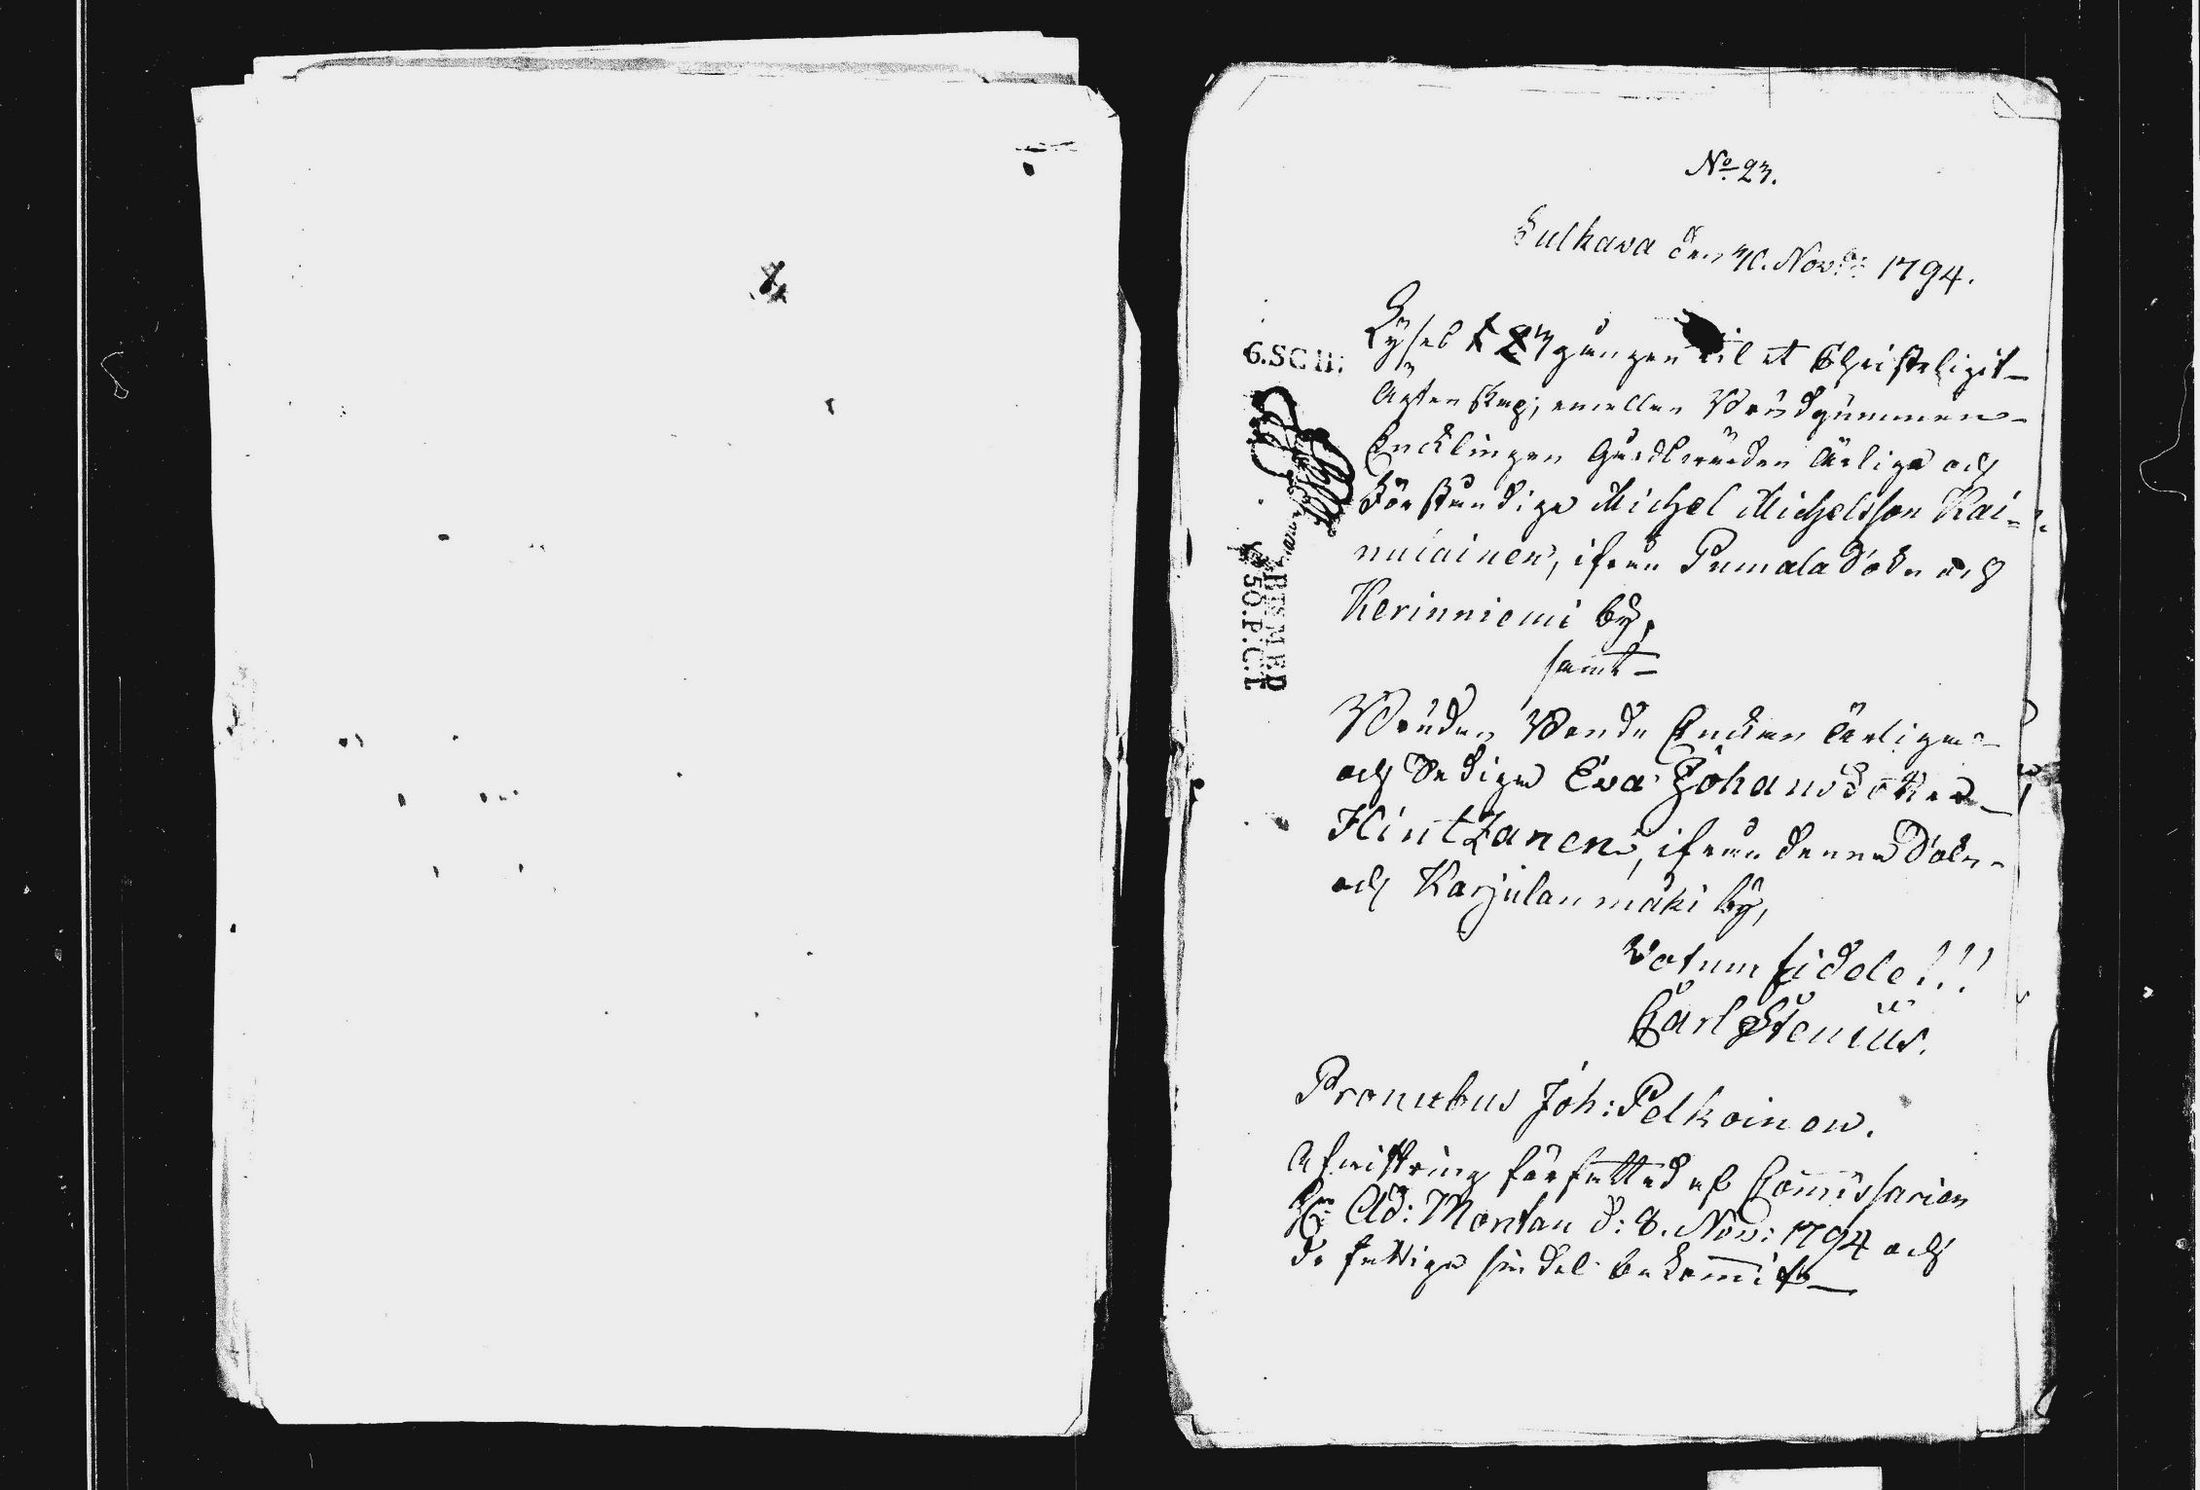 No 23.
Sulkava den 30. Nov: 1794.
Lyses 1 2 3 gången til et Christeligit
Ägtenskap, emellan Brudgummen
Encklingen Gårdbrukaren Ärlige och
Förståndige Michel Michelsson Kai-
nulainen, ifrån Pumala Sokn och
Kerinniemi by,
samt
Bruden Bonde Enckan Ärliga
och Dedige Eva Johansdotter
Hintzanen, ifrån denna Sokn
och Karjulanmäki by,
Votum fidele!!!
Carl Stenius.
Pronubus Joh: Pelkoinen.
Afwittring författad af Commissarien
Hr Ad: Montan d: 8. Nov: 1794 och
de fattiga sin del bekommit
6.SC II:
50.P.C.T.